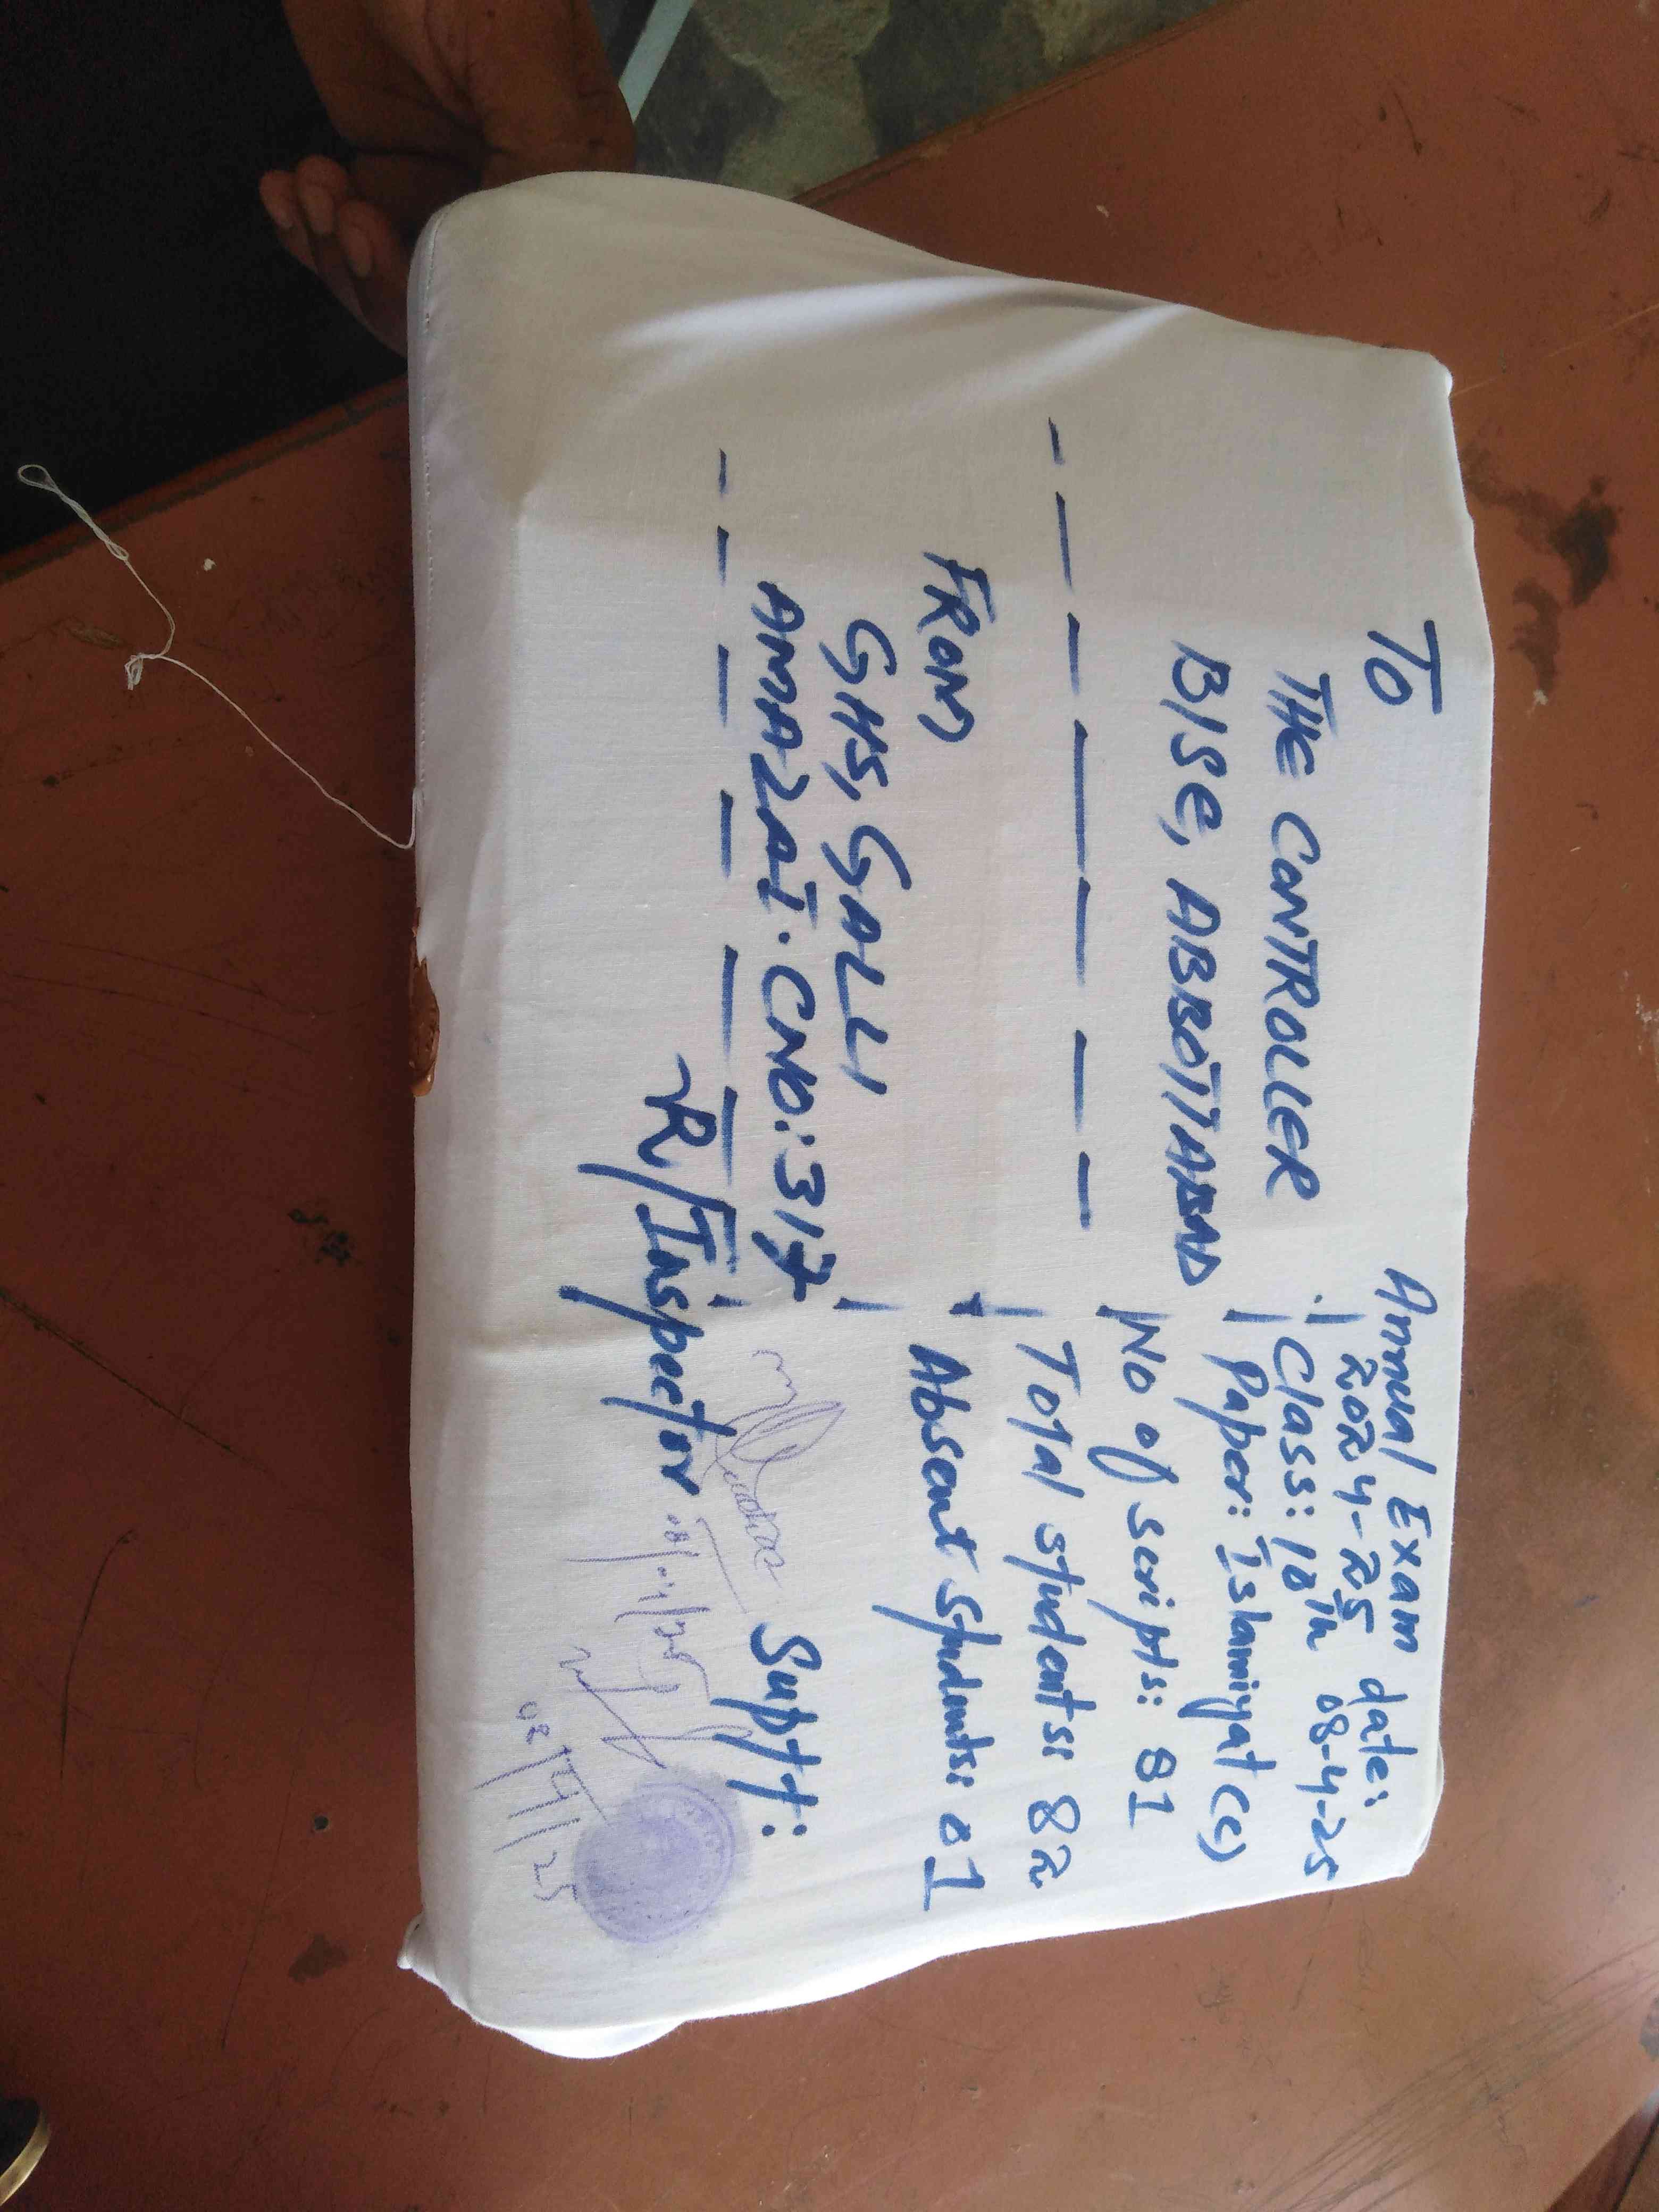 TO
THE CONTROLLER
BISE, ABBOTTABAD
FROM
GHS, GALLI
AMAZAI. CNO: 317
R/Inspector
Annual Exam date:
2024-25 08-4-25
Class: 10th
Paper: Islamiyat (c)
No of scripts: 81
Total students: 82
Absent Students: 01
Suptt: